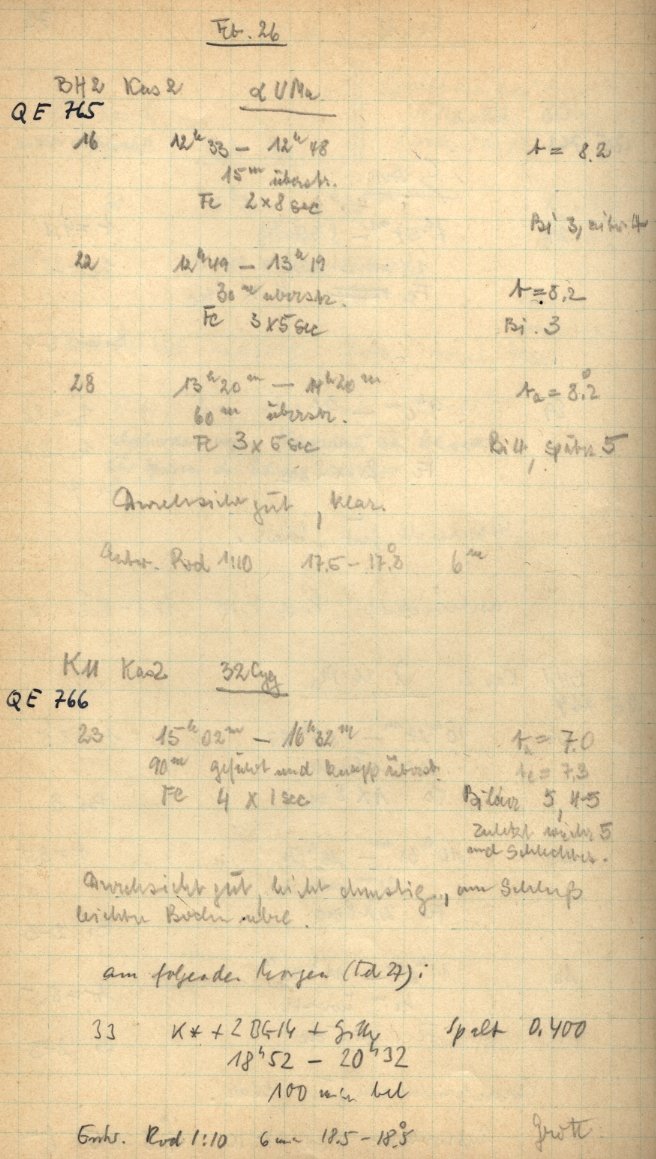 Feb. 26
BH2 Kas2 α UMa
QE 765
16 12h33 — 12h48 t = 8.2
15m überstr.
Fe 2x8 sec
Bi 3,
22 12h49 — 13h19
30m überstr. t = 8,2
Fe 3x5 sec Bi. 3
28 13h20m — 14h20m ta = 8.2°
60m überstr.
Fe 3x5 sec Bi 4, später 5
Durchsicht gut, klar.
Entw. Rod 1:10 17.5 – 17.8° 6m
K11 Kas2 32 Cyg
QE 766
23 15h02m — 16h32m ta = 7.0
90m geführt und knapp überstr. te = 7,3
Fe 4 x 1 sec Bilder 5, 4-5
zuletzt wieder 5
und schlechter.
Durchsicht gut, leicht dunstig, am Schluß
leichter Bodennebel.
am folgenden Morgen (Feb 27):
33 K* + 2 BG14 + Spalt 0.400
18h52 — 20h32
100 min bel
Entw. Rod 1:10 6 min 18.5 – 18.5°